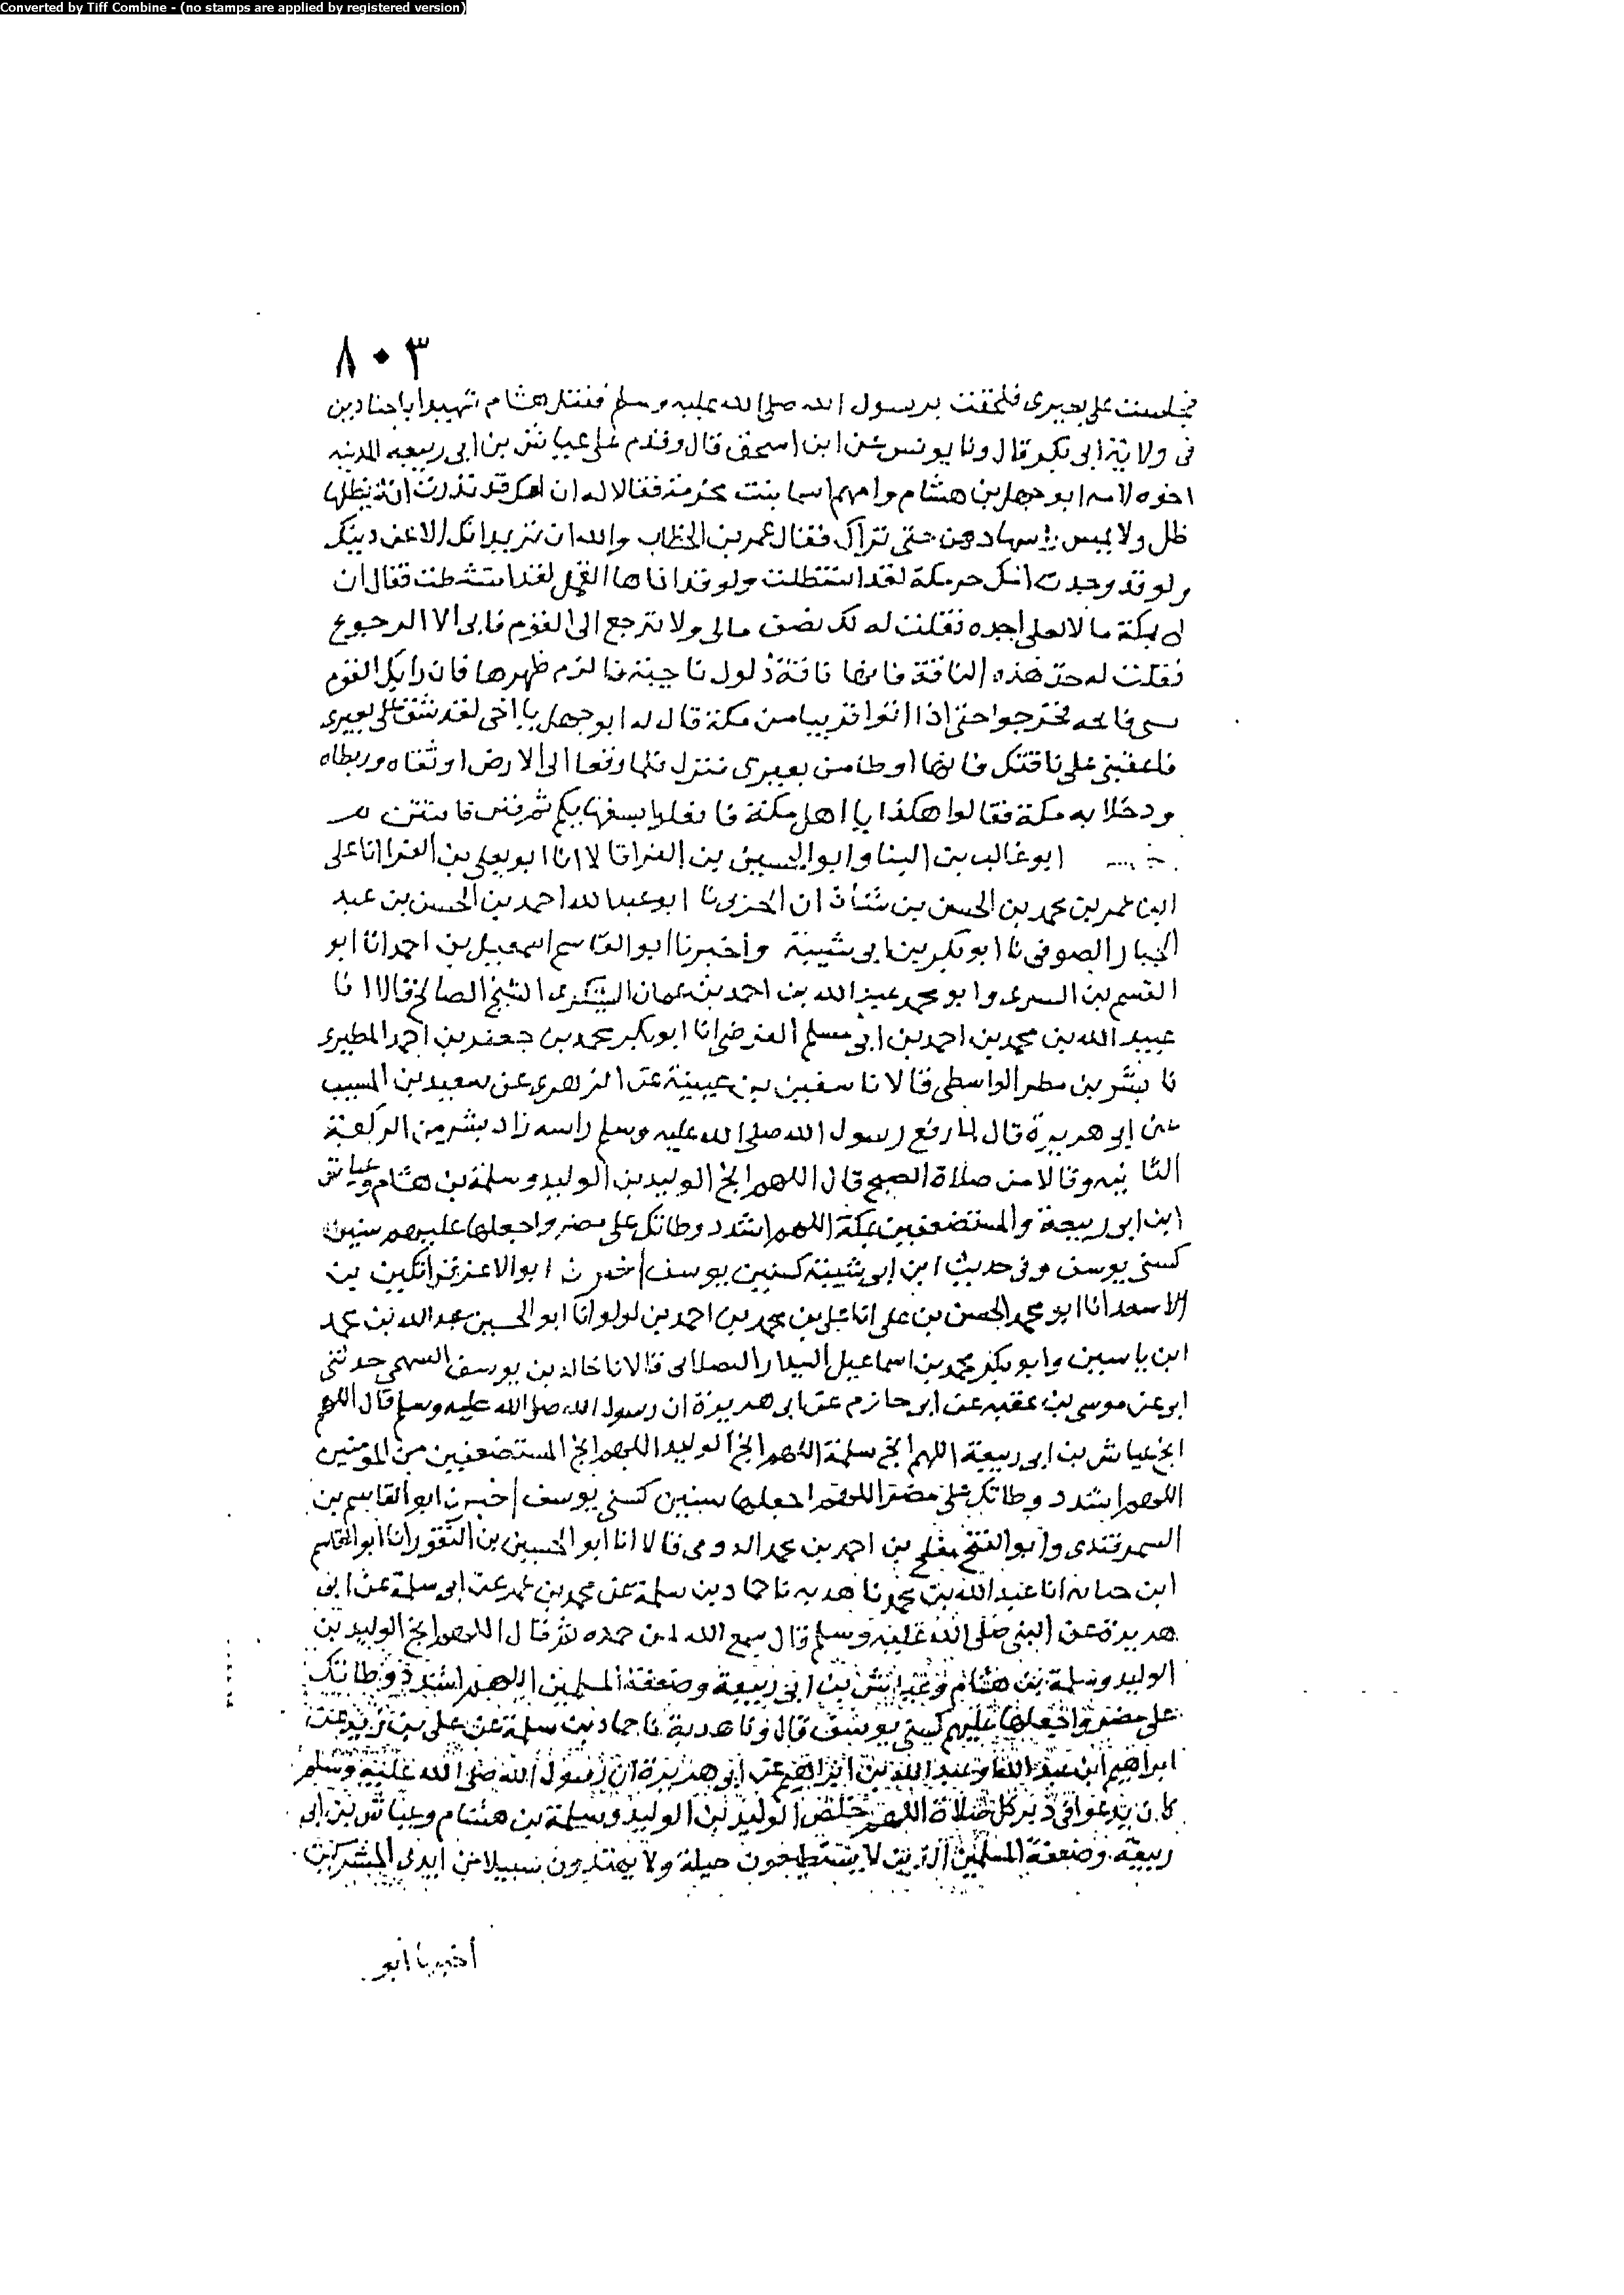 Converted by Tiff Combine - (no stamps are applied by registered version)
٨٠٣
فجلست على بعيرى فلحقت برسول الله صلى الله عليه وسلم فقتل هشام شهيدا باجنادين
فى ولاية ابى بكر قال ونا يونس عن ابن اسحق قال وقدم على عياش بن ابى ربيعه المدينه
اخوه لامه ابو جهل بن هشام وامهم اسما بنت مخرمة فقالا له ان امك قد نذرت ان لا يظلها
ظل ولا يمس راسها دهن حتى تراك فقال عمر بن الخطاب والله ان يريدانك الا عن دينك
ولو قد وجدت امك حر مكة لقد استظلت ولو قد اذاها القمل لقد امتشطت فقال ان
لى بمكة مالا لعلى اجده فقلت له لك نصف مالى ولا ترجع الى القوم فابى الا الرجوع
فقلت له خذ هذه الناقة فانها ناقة ذلول ناجية فالزم ظهرها فان رابك القوم
بشى فانجه فخرجوا حتى اذا اتوا قريبا من مكة قال له ابو جهل يا اخى لقد شق على بعيرى
فاعقبنى على ناقتك فانها اوطا من بعيرى فنزل فلما وقعا الى الارض اوثقاه وربطاه
ودخلا به مكة فقالوا هكذا يا اهل مكة فافعلوا بسفهايكم ثم فتن فافتتن
ابو غالب بن البنا وابو الحسين بن الفرا قالا انا ابو يعلى بن الفرا انا على
ابن عمر بن محمد بن الحسن بن شاذان الحربى نا ابو عبد الله احمد بن الحسن بن عبد
الجبار الصوفى نا ابو بكر بن ابى شيبة واخبرنا ابو القاسم اسمعيل بن احمد انا ابو
القسم بن البسرى وابو محمد عبد الله بن احمد بن عثمان السكرى الشيخ الصالح قالا انا
عبيد الله بن محمد بن احمد بن ابى مسلم الفرضى انا ابو بكر محمد بن جعفر بن احمد المطيرى
نا بشر بن مطر الواسطى قالا نا سفين بن عيينة عن الزهرى عن سعيد بن المسيب
عن ابى هريرة قال لما رفع رسول الله صلى الله عليه وسلم راسه زاد بشر من الركعة
الثانيه وقالا من صلاة الصبح قال اللهم انج الوليد بن الوليد وسلمة بن هشام وعياش
ابن ابى ربيعة والمستضعفين بمكة اللهم اشدد وطاتك على مضر واجعلها عليهم سنين
كسنى يوسف وفى حديث ابن ابى شيبة كسنين يوسف اخبرنا ابو الاعز قراتكين بن
الاسعد انا ابو محمد الحسن بن على انا على بن محمد بن احمد بن لولو انا ابو الحسين عبد الله بن محمد
ابن ياسين وابو بكر محمد بن اسماعيل البندار البصلانى قالا نا خالد بن يوسف السمتى حدثنى
ابى عن موسى بن عقبه عن ابى حازم عن ابى هريرة ان رسول الله صلى الله عليه وسلم قال اللهم
انج عياش بن ابى ربيعة اللهم انج سلمة اللهم انج الوليد اللهم انج المستضعفين من المومنين
اللهم اشدد وطاتك على مضر اللهم اجعلها سنين كسنى يوسف اخبرنا ابو القاسم بن
السمرقندى وابو الفتح مفلح بن احمد بن محمد الدومى قالا انا ابو الحسين بن النقور انا ابو القاسم
ابن حبابه انا عبد الله بن محمد نا هدبه نا حماد بن سلمة عن محمد بن عمرو عن ابى سلمة عن ابى
هريرة عن النبى صلى الله عليه وسلم قال سمع الله لمن حمده ثم قال اللهم انج الوليد بن
الوليد وسلمة بن هشام وعياش بن ابى ربيعة وضعفة المسلمين اللهم اشدد وطاتك
على مضر واجعلها عليهم كسنى يوسف قال ونا هدبة نا حماد بن سلمة عن على بن زيد عن
ابراهيم ابن عبد الله او عبد الله بن ابراهيم عن ابى هريرة ان رسول الله صلى الله عليه وسلم
كان يدعوا فى دبر كل صلاة اللهم خلص الوليد بن الوليد وسلمة بن هشام وعياش بن ابى
ربيعة وضعفة المسلمين الذين لا يستطيعون حيلة ولا يهتدون سبيلا من ايدى المشركين
أخبرنا أبو